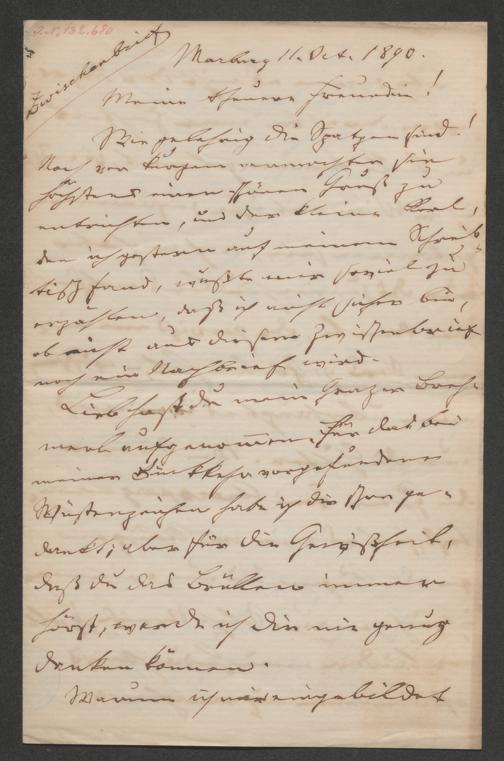 I.N. 132.680
Zwischenbrief
Marburg 11. Oct. 1890.
Meine theuere Freundin!
Wie gelehrig die Spatzen sind!
Noch vor kurzem vermochten sie
höchstens einen schönen Gruß zu
entrichten, und der kleine Kerl,
den ich gestern auf meinem Schreib-
tisch fand, wußte mir soviel zu
erzählen, daß ich nicht sicher bin,
ob nicht aus diesem Zwischenbrief
noch ein Nachbrief wird.
Lieb hast du mein Grazer
aufgenommen. Für das bei
meiner Rückkehr vorgefundene
Wüstenzeichen habe ich dir schon ge-
dankt; aber für die Gewißheit,
daß du das Brüllen immer
hörst, werde ich dir nie genug
danken können.
Warum ich mir eingebildet